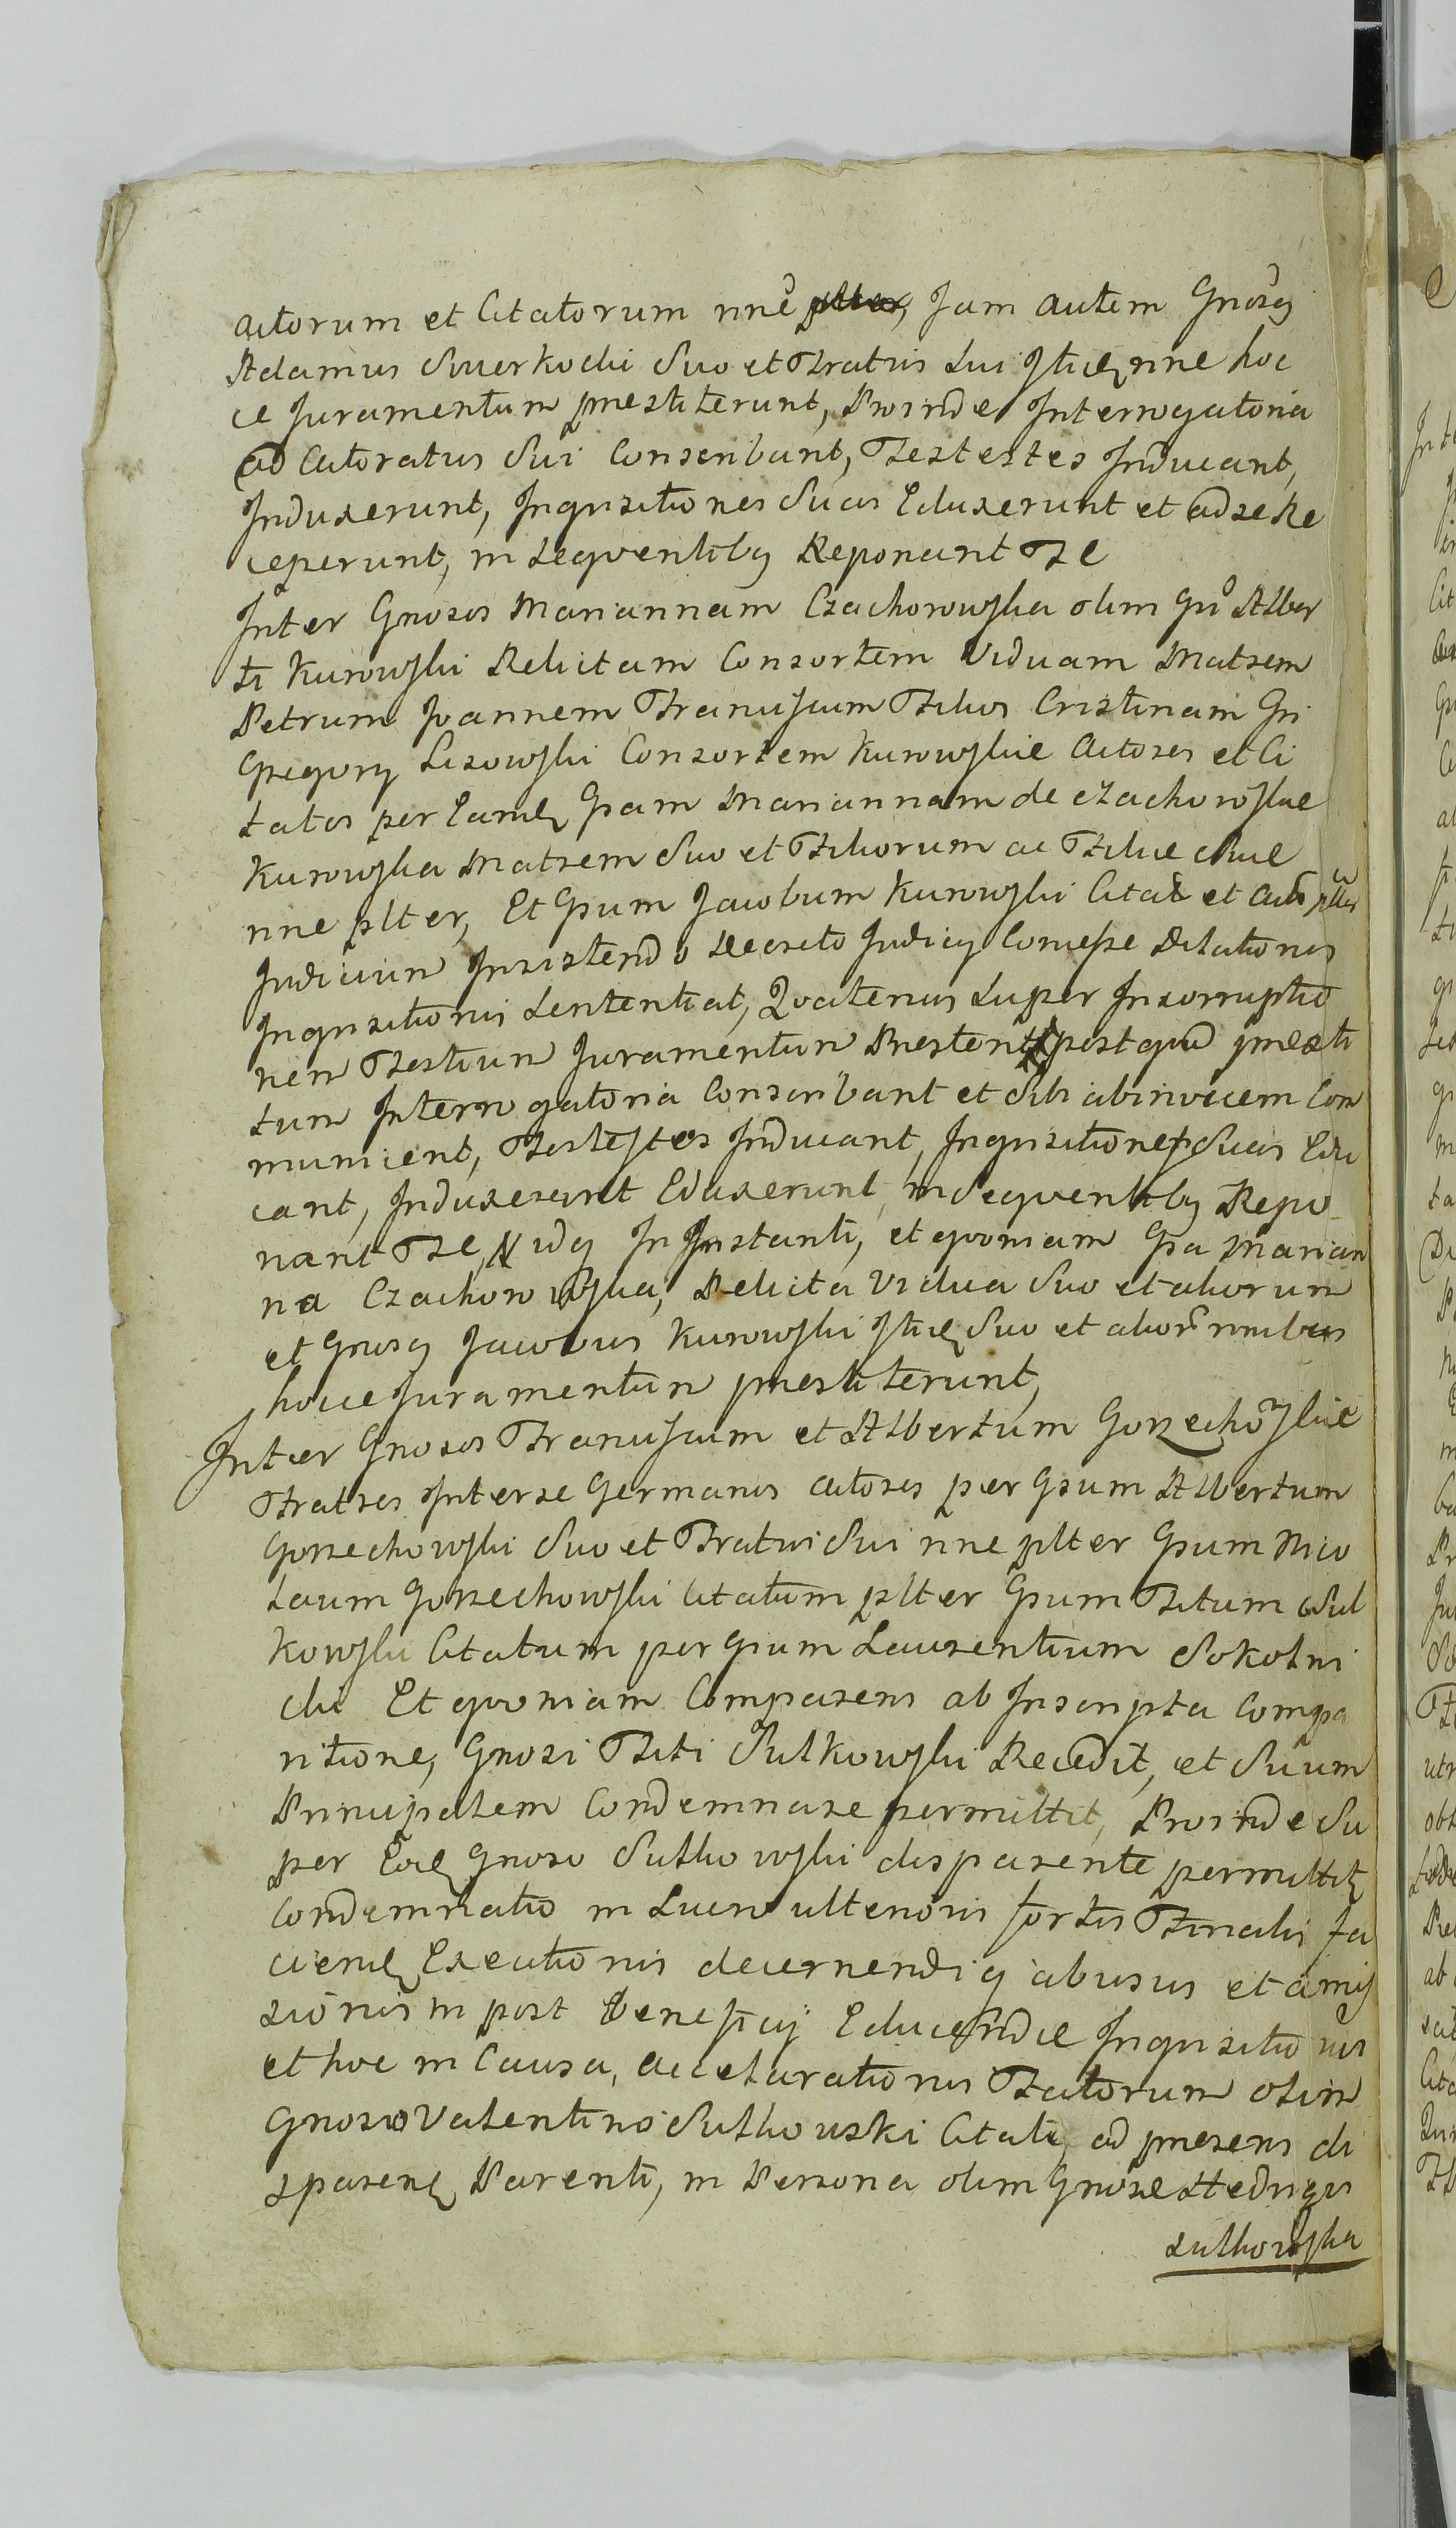 actorum et Citatorum nne plter, Jam autem Gnosg
Adamus Swerkocki Suo et Fratris Sui Jtieq nne hoc
ce Juramentum prestiterunt, Proinde Interrogatoria
ad Catoratus Sui Conscribant, Testestes Inducant,
Induxerunt, Inqvisitiones Suas Eduxerunt et ad se Re
ceperunt, in Seqventibg Reponant Tse
Inter Gnosos Mariannam Czachorowska olim Gn Alber
ti Kurowski Relictam Consortem Viduam Matrem
Petrum Joannem Franciscum Filios Cristinam Gn
Gregorij Lisowski Consortem Kurowskie Actores et Ci
tatos per Eandq Gsam Mariannam de Czachorowskie
Kurowska Matrem Suo et Filiorum ac Filie Sue
nne plter, Et Gsum Jacobum Kurowski Citat et Act plter
Judicium Insistendo Decreto Judicij Comisse Dilationis
Inqvisitionis Sententiat, Qvatenus Super Incorruptio
nem Testium Juramentum Prestent postqvod presti
tum Interrogatoria Conscribant et Sibi abinvicem Com
municent, Testestes Inducant, Inqvisitiones Suas Edu
cant, Induxerunt Eduxerunt, in Seqventibg Repo
nant Tse, N idq In Instanti, et qvoniam Gsa Marian
na Czachorowska, Relicta Vidua Suo et aliorum
et Gnosg Jacobus Kurowski Jtieq Suo et alior nnibus
hocce Juramentum prestiterunt,
Inter Gnosos Franciscum et Albertum Gorzechowskie
Fratres Interse Germanos actores per Gsum Albertum
Gorzechowski Suo et Fratris Sui nne plter Gsum Nico
laum Gorzechowski Citatum plter Gsum Titum Sul
kowski Citatum per Gsum Laurentium Sokolni
cki Et qvoniam Comparens ab Inscripta Compa
ritione, Gnosi Titi Sulkowski Recedit, et Suum
Principalem Condemnare permittit, Proinde Su
per Eoq Gnoso Sulkowski disparente permittitq
Condemnatio in Lucro ulterioris fortis Finalis fa
ciendq Executionis decernendi q abusus et amis
sionis in post beneficij Educendie Inqvisitionis
et hoc in Causa, accelerationis Fatorum olim
Gnoso Valentino Sulkowski Citati, ad presens di
sparenq Parenti, in Persona olim Gnose Hedvigis
Sulkowska